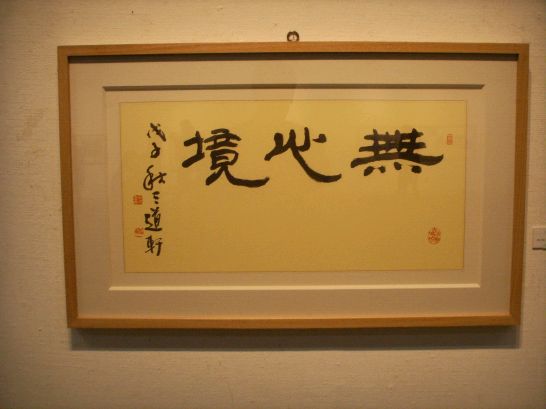 無心境
戊子秋三道軒